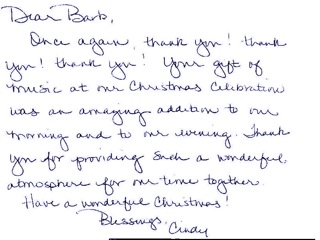 Dear Barb,
Once again, thank you! thank
you! thank you! Your gift of
music at our Christmas Celebration
was an amazing addition to our
morning and to our evening. Thank
you for providing such a wonderful,
atmosphere for our time together.
Have a wonderful Christmas!
Blessings,
Cindy